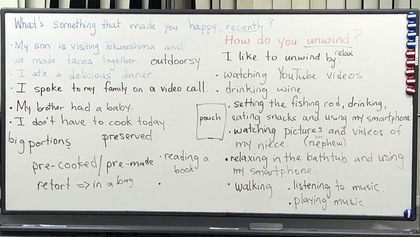 What's something that made you happy, recently?
• My son is visiting Tokunoshima and
we made tacos together.
outdoorsy
• I ate a delicious dinner.
• I spoke to my family on a video call.
• My brother had a baby.
• I don't have to cook today
big portions
preserved
pre-cooked/pre-made
retort ⇒ in a bag
• reading a
book
•
How do you unwind?
relax
I like to unwind by
• watching YouTube videos
• drinking wine
pouch
• setting the fishing rod, drinking,
eating snacks and using my smartphone
• watching pictures and videos of
my niece (nephew)
• relaxing in the bathtub and using
my smartphone.
• walking
• listening to music
• playing music